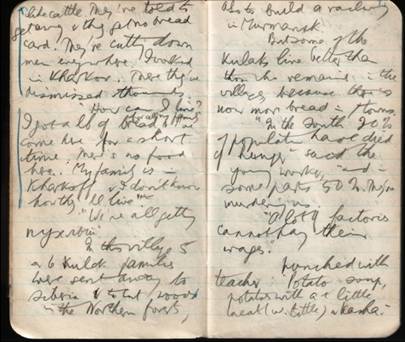 like cattle. They're told to
get away & they get no bread
card. They're cutting down
men everywhere. I worked
in Kharkoff. There they've
dismissed thousands.
"How can I live?
I got a lb of bread
for a short
time. There's no food
here. My family is in
Kharkoff & I don't know
how they'll live."
"We're all getting
In this village 5
or 6 kulak families
were sent away to
Siberia & to cut wood
in the Northern forests,
also to build a railway
in Murmansk.
But some of the
kulaks live better than
those who remained in the
village because there is
now more bread in towns.
"In the South 20%
of population have died
of hunger" said the
young worker, "and in
some parts 50%. They're
murdering us."
"A lot of factories
cannot pay their
wages."
Lunched with
teacher. Potato soup,
potatoes with a little
meat (v. little) & kasha.